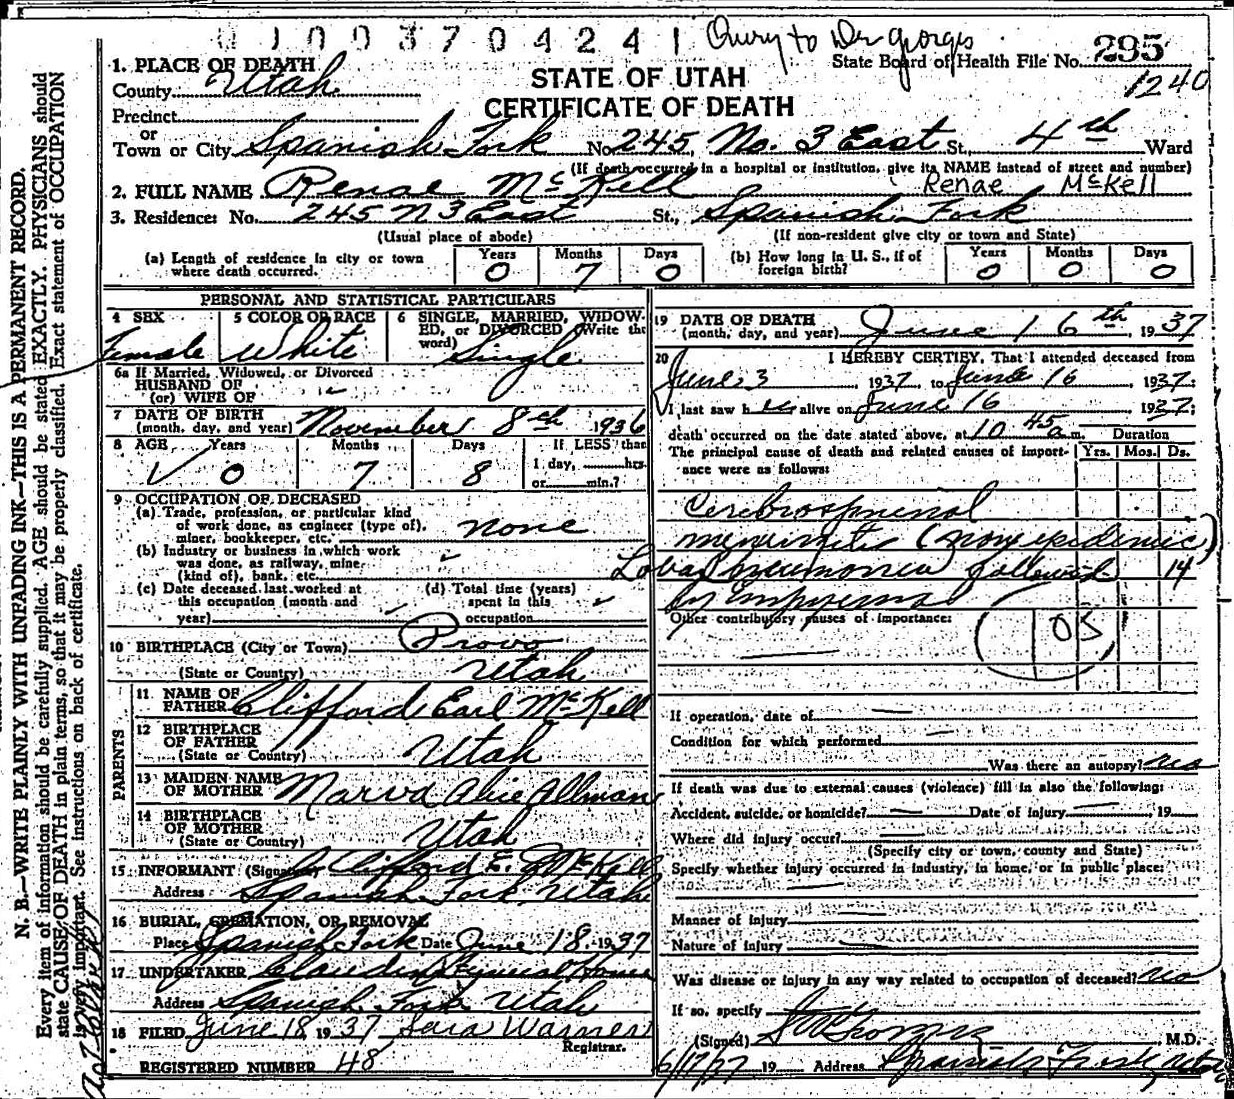 0100370424 1 Query to Dr Georges
State Board of Health File No. 295
1240
STATE OF UTAH
CERTIFICATE OF DEATH
1. PLACE OF DEATH
County Utah
Precinct
or
Town or City Spanish Fork No. 245 No. 3 East St., 4th Ward
(If death occurred in a hospital or institution, give its NAME instead of street and number)
2. FULL NAME Renae McKell Renae McKell
3. Residence: No. 245 N 3 East St., Spanish Fork
(Usual place of abode) (If non-resident give city or town and State)
(a) Length of residence in city or town where death occurred. Years 0 Months 7 Days 0
(b) How long in U. S., if of foreign birth? Years 0 Months 0 Days 0
PERSONAL AND STATISTICAL PARTICULARS
4 SEX Female
5 COLOR OR RACE White
6 SINGLE, MARRIED, WIDOWED, or DIVORCED (Write the word) Single
6a If Married, Widowed, or Divorced
HUSBAND OF
(or) WIFE OF
7 DATE OF BIRTH
(month, day, and year) November 8th 1936
8 AGE Years 0 Months 7 Days 8 If LESS than
1 day, ____ hrs.
or ____ min.?
9 OCCUPATION OF DECEASED
(a) Trade, profession, or particular kind
of work done, as engineer (type of),
miner, bookkeeper, etc. none
(b) Industry or business in which work
was done, as railway, mine
(kind of), bank, etc.
(c) Date deceased last worked at
this occupation (month and
year)
(d) Total time (years)
spent in this
occupation
10 BIRTHPLACE (City or Town) Provo
(State or Country) Utah
PARENTS
11 NAME OF
FATHER Clifford Earl McKell
12 BIRTHPLACE
OF FATHER
(State or Country) Utah
13 MAIDEN NAME
OF MOTHER Marva Alice Allman
14 BIRTHPLACE
OF MOTHER
(State or Country) Utah
15 INFORMANT (Signature) Clifford E. McKell
Address Spanish Fork Utah
16 BURIAL, CREMATION, OR REMOVAL
Place Spanish Fork Date June 18 1937
17 UNDERTAKER Claudin Funeral Home
Address Spanish Fork Utah
18 FILED June 18, 1937 Sara Warner
Registrar.
REGISTERED NUMBER 48
19 DATE OF DEATH
(month, day, and year) June 16th, 1937
20 I HEREBY CERTIFY, That I attended deceased from
June 3, 1937, to June 16, 1937;
I last saw her alive on June 16, 1937;
death occurred on the date stated above, at 10 45 a m. Duration
The principal cause of death and related causes of importance were as follows: Yrs. Mos. Ds.
Cerebrospinal
meningitis (non epidemic)
Lobar pneumonia followed 14
by empyema
Other contributory causes of importance:
If operation, date of
Condition for which performed
Was there an autopsy? no
If death was due to external causes (violence) fill in also the following:
Accident, suicide, or homicide? Date of injury, 19
Where did injury occur?
(Specify city or town, county and State)
Specify whether injury occurred in industry, in home, or in public place:
Manner of injury
Nature of injury
Was disease or injury in any way related to occupation of deceased? no
If so, specify
(Signed) M.D.
6/17/37 19 Address Spanish Fork, Utah
N. B.—WRITE PLAINLY WITH UNFADING INK—THIS IS A PERMANENT RECORD.
Every item of information should be carefully supplied. AGE should be stated EXACTLY. PHYSICIANS should
state CAUSE OF DEATH in plain terms, so that it may be properly classified. Exact statement of OCCUPATION
is very important. See instructions on back of certificate.